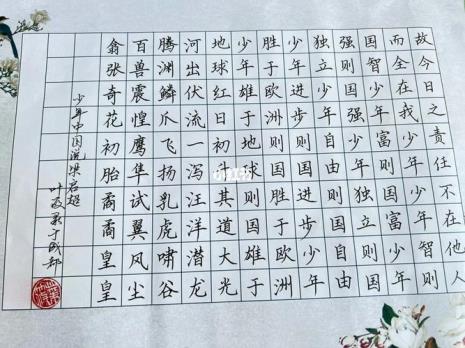 故今日之责任不在他人
而全在我少年少年智则
国智少年富则国富少年
强则国强少年独立则国
独立少年自由则国自由
少年进步则国进步少年
胜于欧洲则国胜于欧洲
少年雄于地球则国雄于
地球红日初升其道大光
河出伏流一泻汪洋潜龙
腾渊鳞爪飞扬乳虎啸谷
百兽震惶鹰隼试翼风尘
翕张奇花初胎矞矞皇皇
少年中国说梁启超
叶于成都
小红书